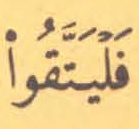 فَلْيَتَّقُواْ